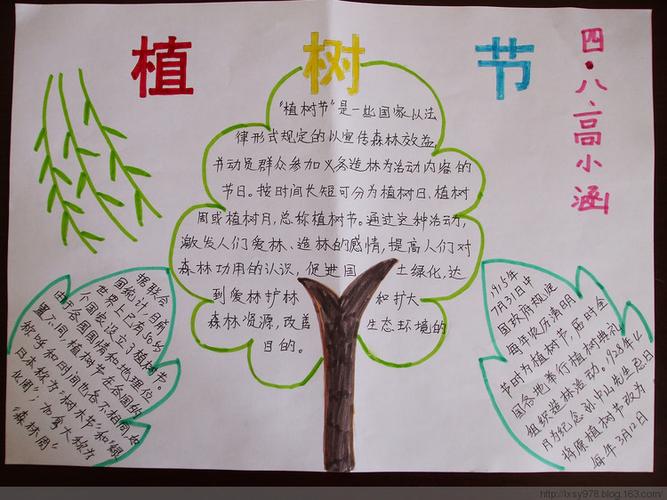 植树节
四·八、高小涵
"植树节"是一些国家以法
律形式规定的以宣传森林效益,
并动员群众参加义务造林为活动内容的
节日。按时间长短可分为植树日、植树
周或植树月,总称植树节。通过这种活动,
激发人们爱林、造林的感情,提高人们对
森林功用的认识,促进国土绿化,达
到爱林护林和扩大
森林资源,改善生态环境的
目的。
据联合
国统计,目前
世界上已有50多
个国家设立了植树节。
由于各国国情和地理位
置不同,植树节在各国的
称呼和时间也各不相同,如
日本称为"树木节"和"绿
化周";加拿大称为
"森林周"
1915年
7月31日中
国政府规定
每年农历清明
节时为植树节,届时全
国各地举行植树典礼,
组织造林运动。1928年4
月为纪念孙中山先生忌日
将原植树节改为
每年3月12日
http://lxsy978.blog.163.com/